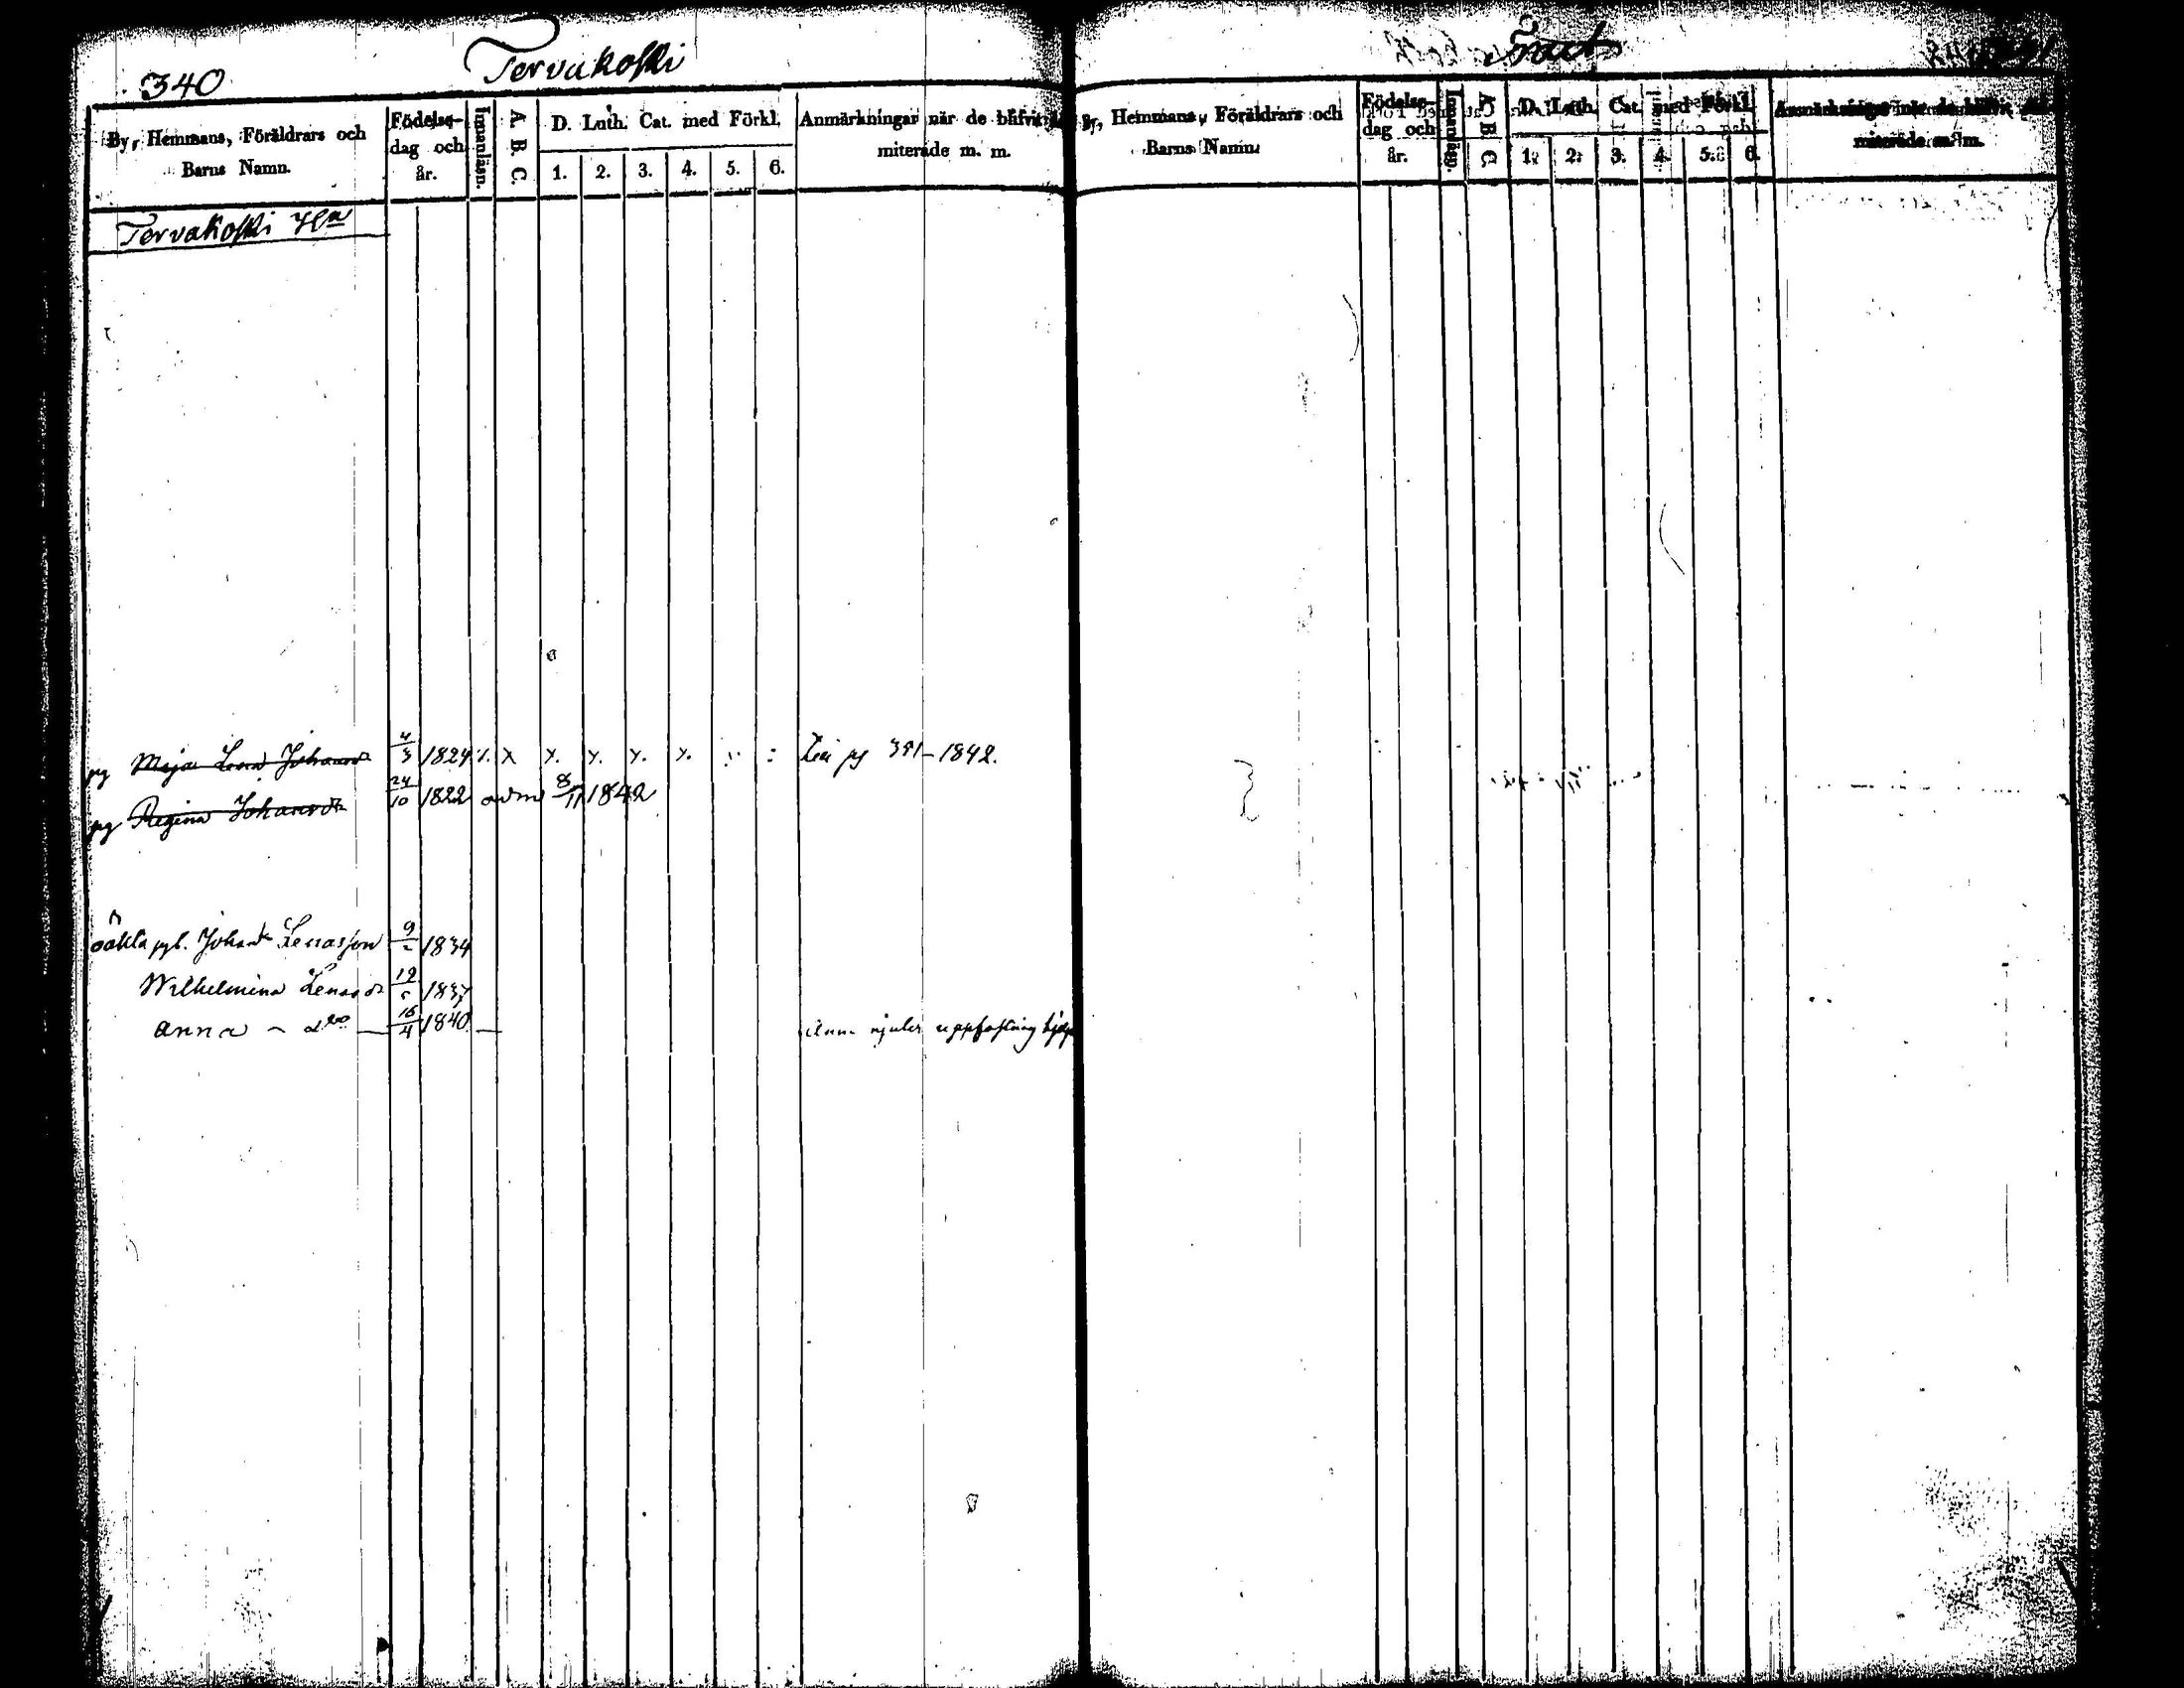 340
Tervakoski
By, Hemmans, Föräldrars och Barns Namn.
Födelse- dag och år.
Innanläsn.
A. B. C.
D. Luth. Cat. med Förkl.
1. 2. 3. 4. 5. 6.
Anmärkningar när de blifvit
miterade m. m.
Tervakoski
pg Maja Lena Johansdr 4/3 1824 x x. x. x. x.
pg 391-1842.
pg Regina Johansdr 24/10 1822 adm 8/11 1842
oäkta Johan Lenasson 9/2 1834
Wilhelmina Lenasdr 12/5 1837
Anna - d:o 16/4 1840
njuter uppfostring
By, Hemmans, Föräldrars och
Barns Namn.
Födelse- dag och år.
Innanläsn.
A. B. C.
D. Luth. Cat. med Förkl.
1. 2. 3. 4. 5. 6.
miterade m. m.